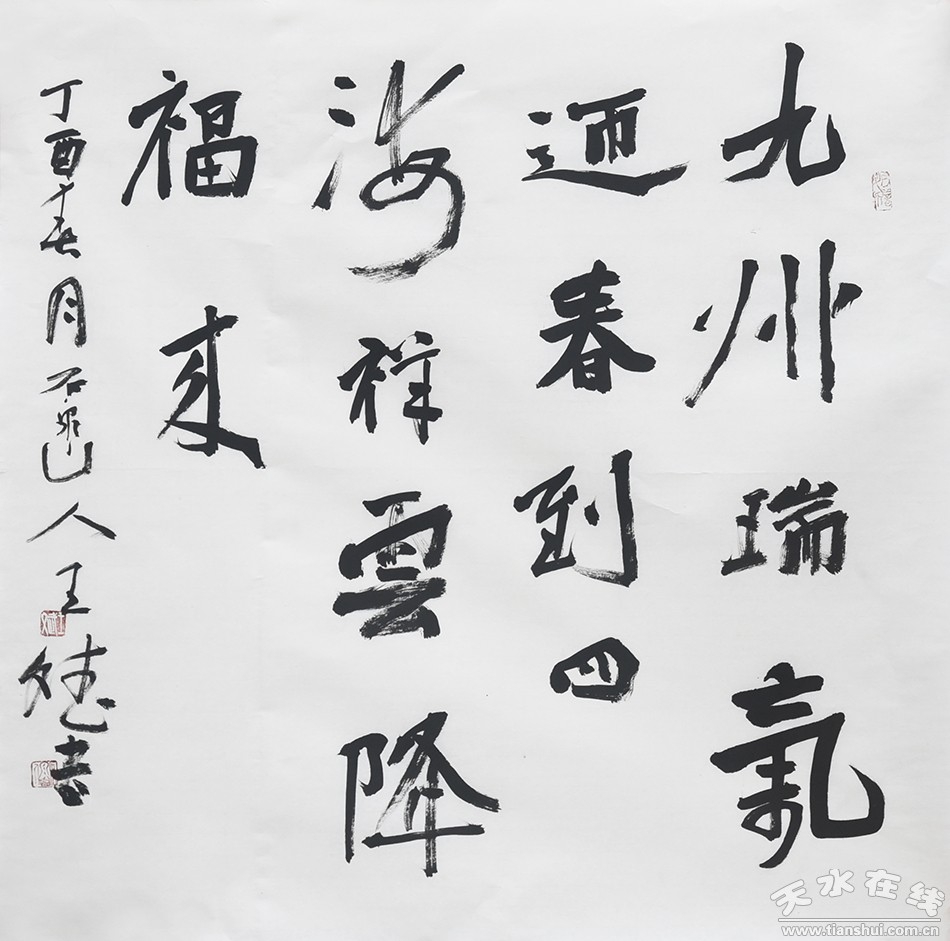 九州瑞氣
迎春到四
海祥雲降
福来
丁酉十月石山人王斌書
天水在线
www.tianshui.com.cn